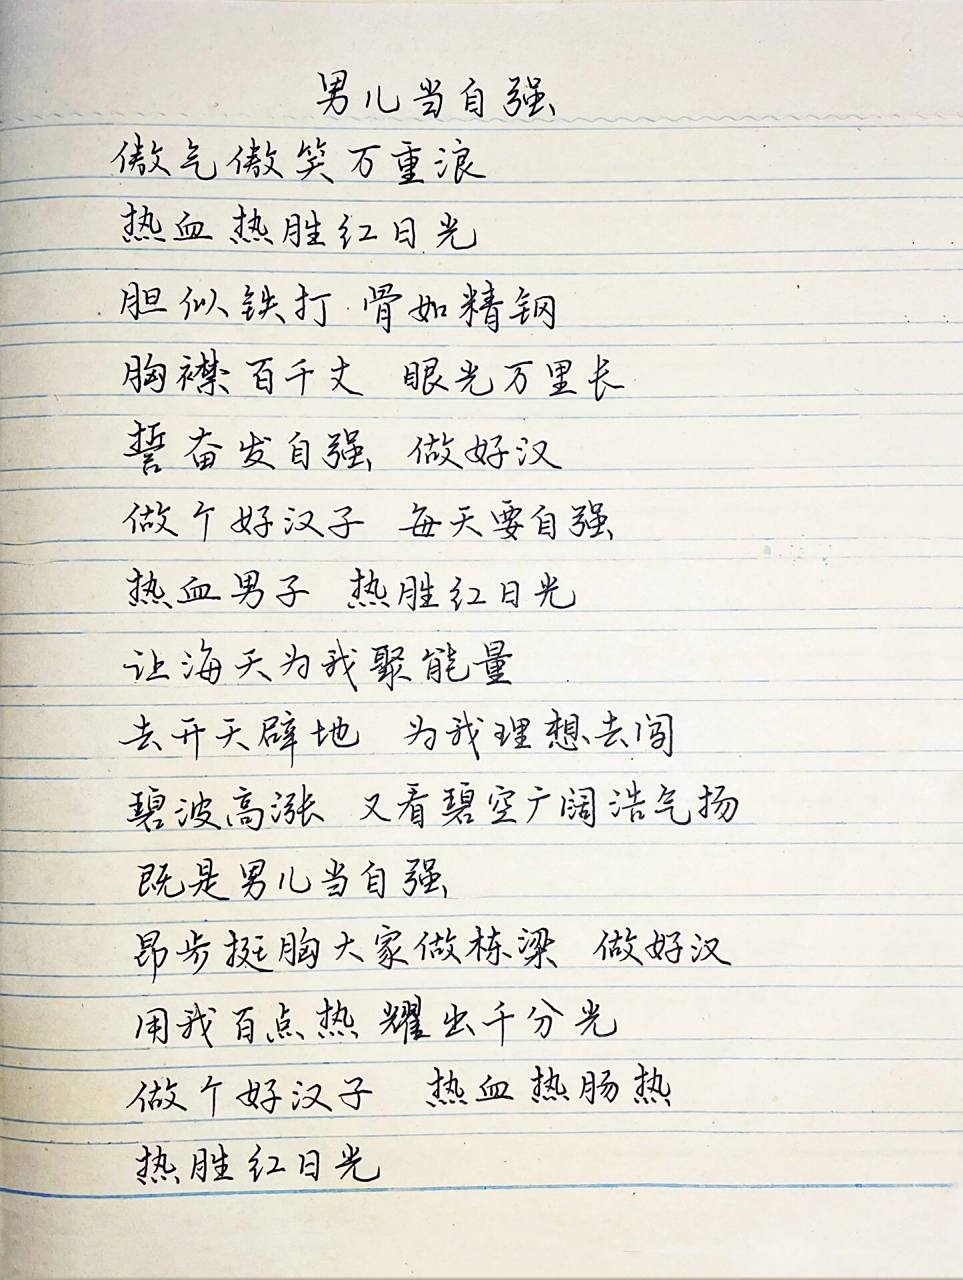 男儿当自强
傲气傲笑万重浪
热血热胜红日光
胆似铁打 骨如精钢
胸襟百千丈 眼光万里长
誓奋发自强 做好汉
做个好汉子 每天要自强
热血男子 热胜红日光
让海天为我聚能量
去开天辟地 为我理想去闯
碧波高涨 又看碧空广阔浩气扬
既是男儿当自强
昂步挺胸大家做栋梁 做好汉
用我百点热 耀出千分光
做个好汉子 热血热肠热
热胜红日光